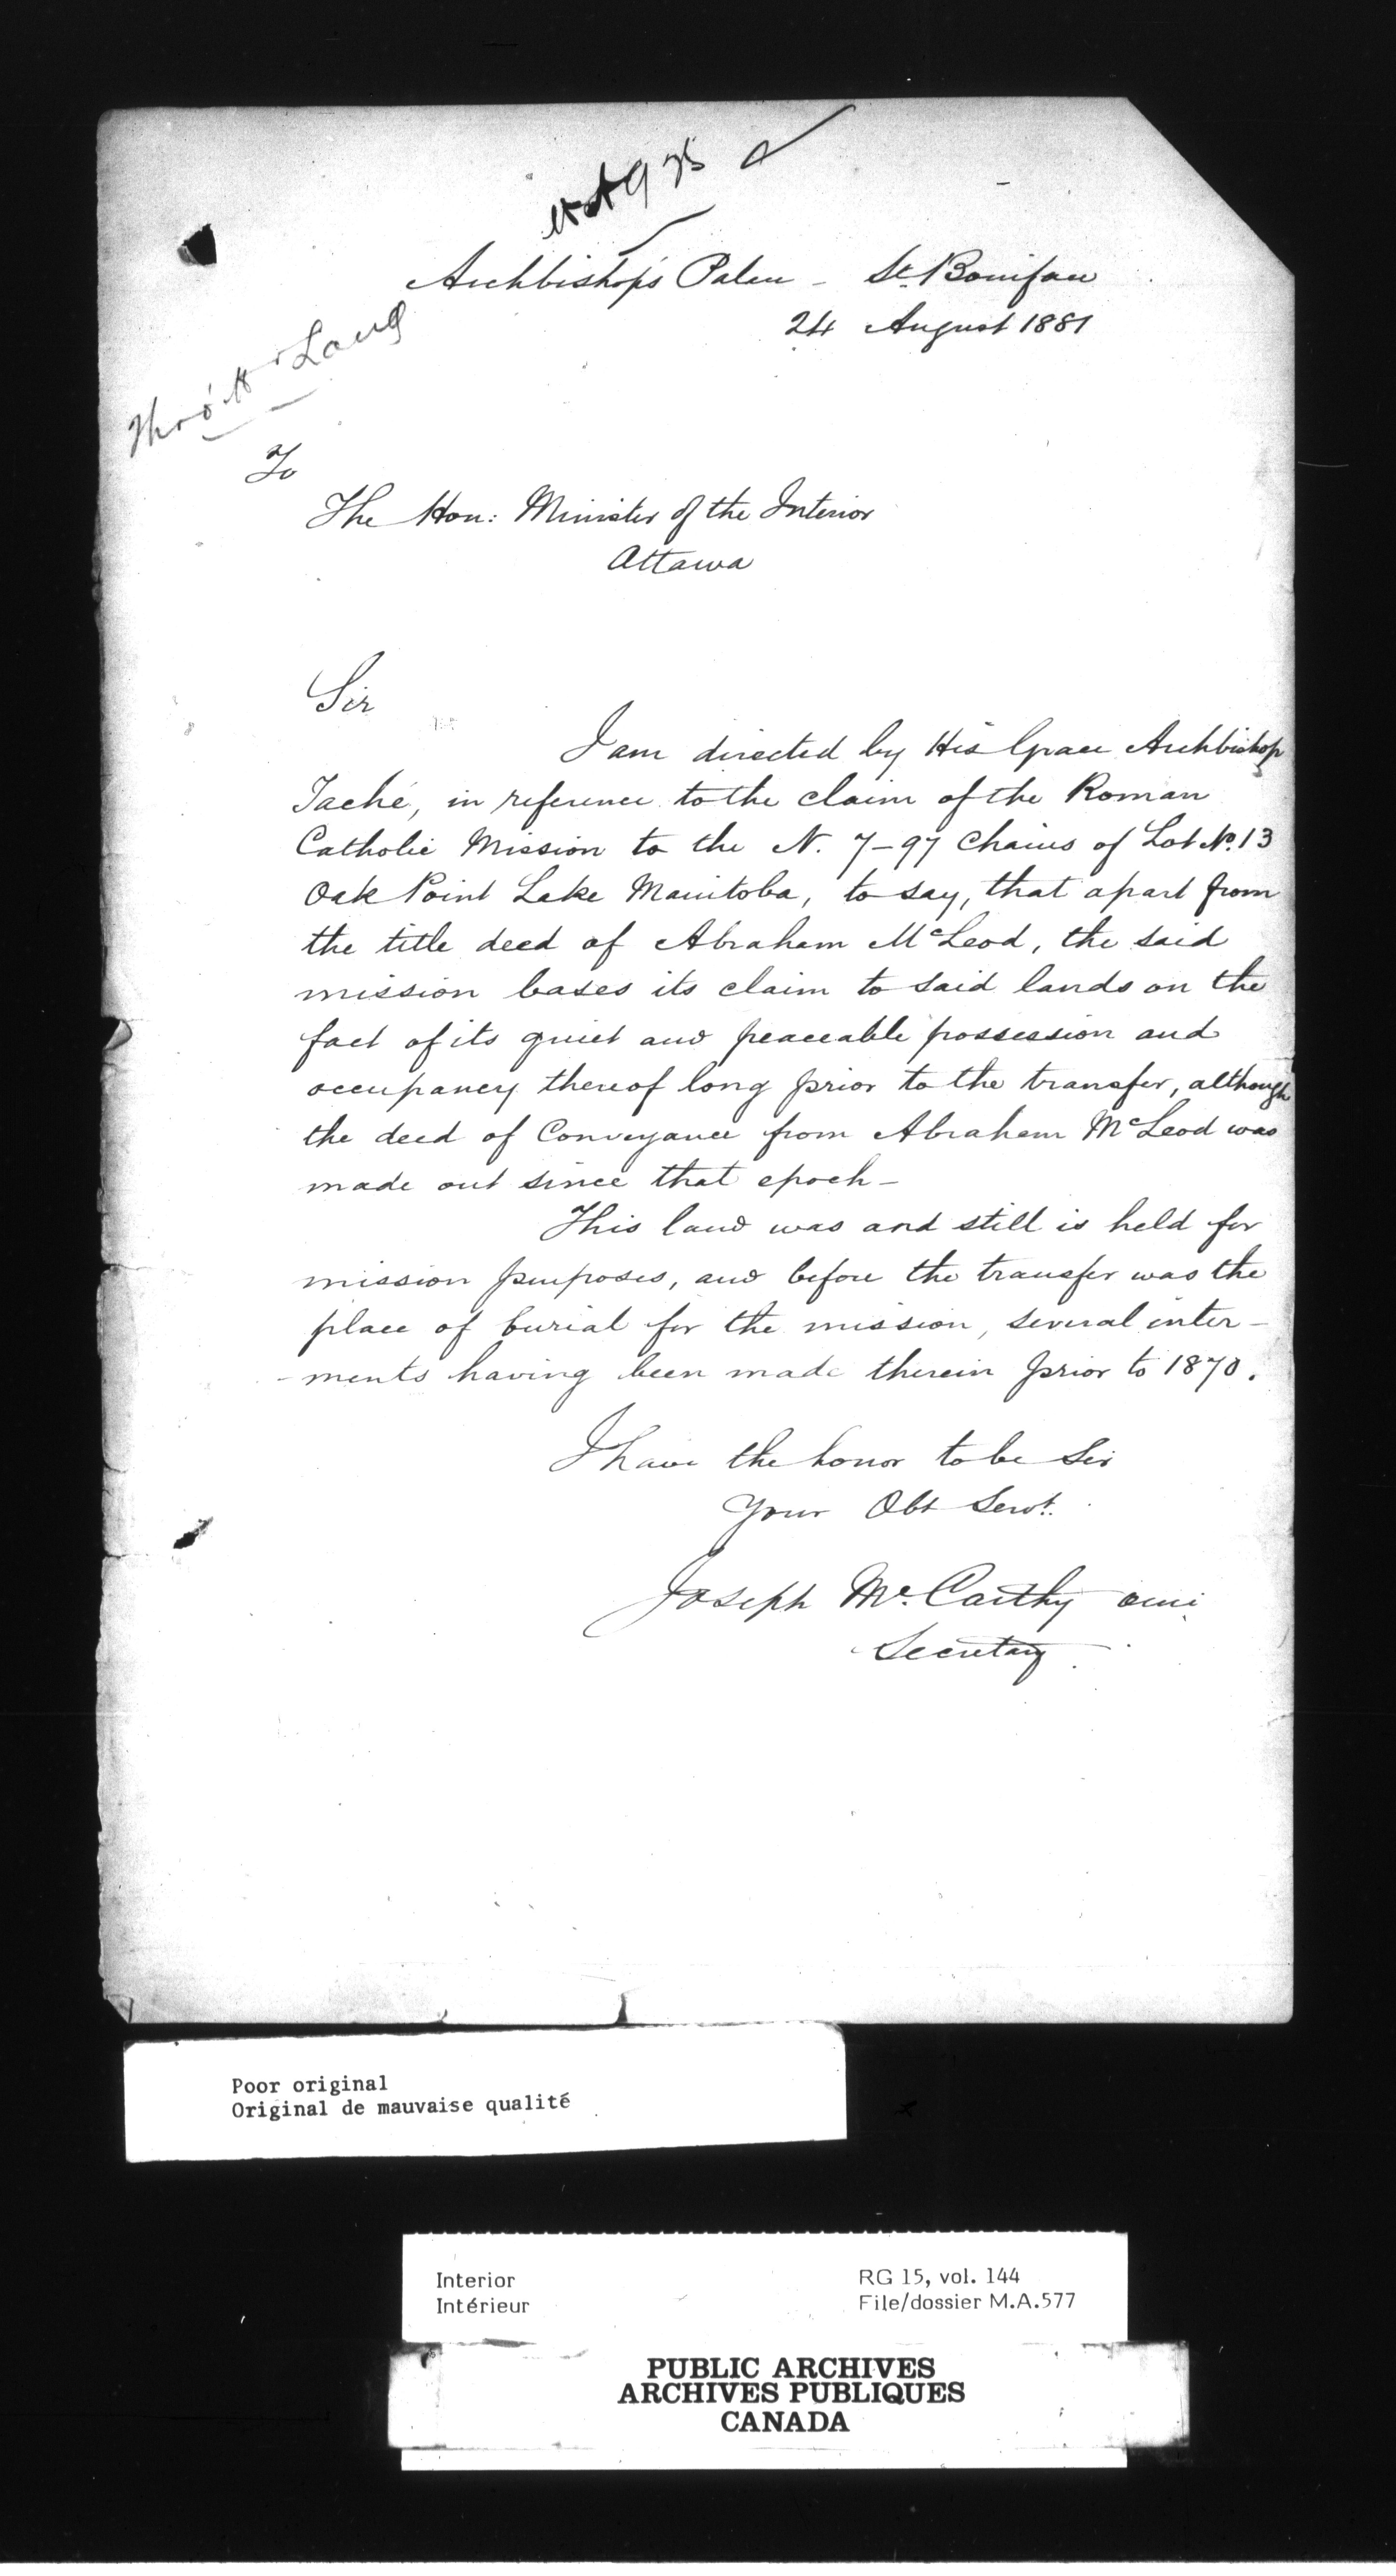 Archbishop's Palace - St. Boniface
24 August 1881
To
The Hon: Minister of the Interior
Ottawa
Sir
I am directed by His Grace Archbishop
Taché, in reference to the claim of the Roman
Catholic Mission to the N. 7-97 Chains of Lot No. 13
Oak Point Lake Manitoba, to say, that apart from
the title deed of Abraham McLeod, the said
mission bases its claim to said lands on the
fact of its quiet and peaceable possession and
occupancy thereof long prior to the transfer, although
the deed of Conveyance from Abraham McLeod was
made out since that epoch -
This land was and still is held for
mission purposes, and before the transfer was the
place of burial for the mission, several inter-
-ments having been made therein prior to 1870.
I have the honor to be Sir
Your Obt Servt.
Joseph Mc. Carthy omi
Secretary.
Poor original
Original de mauvaise qualité
Interior
Intérieur
RG 15, vol. 144
File/dossier M.A.577
PUBLIC ARCHIVES
ARCHIVES PUBLIQUES
CANADA